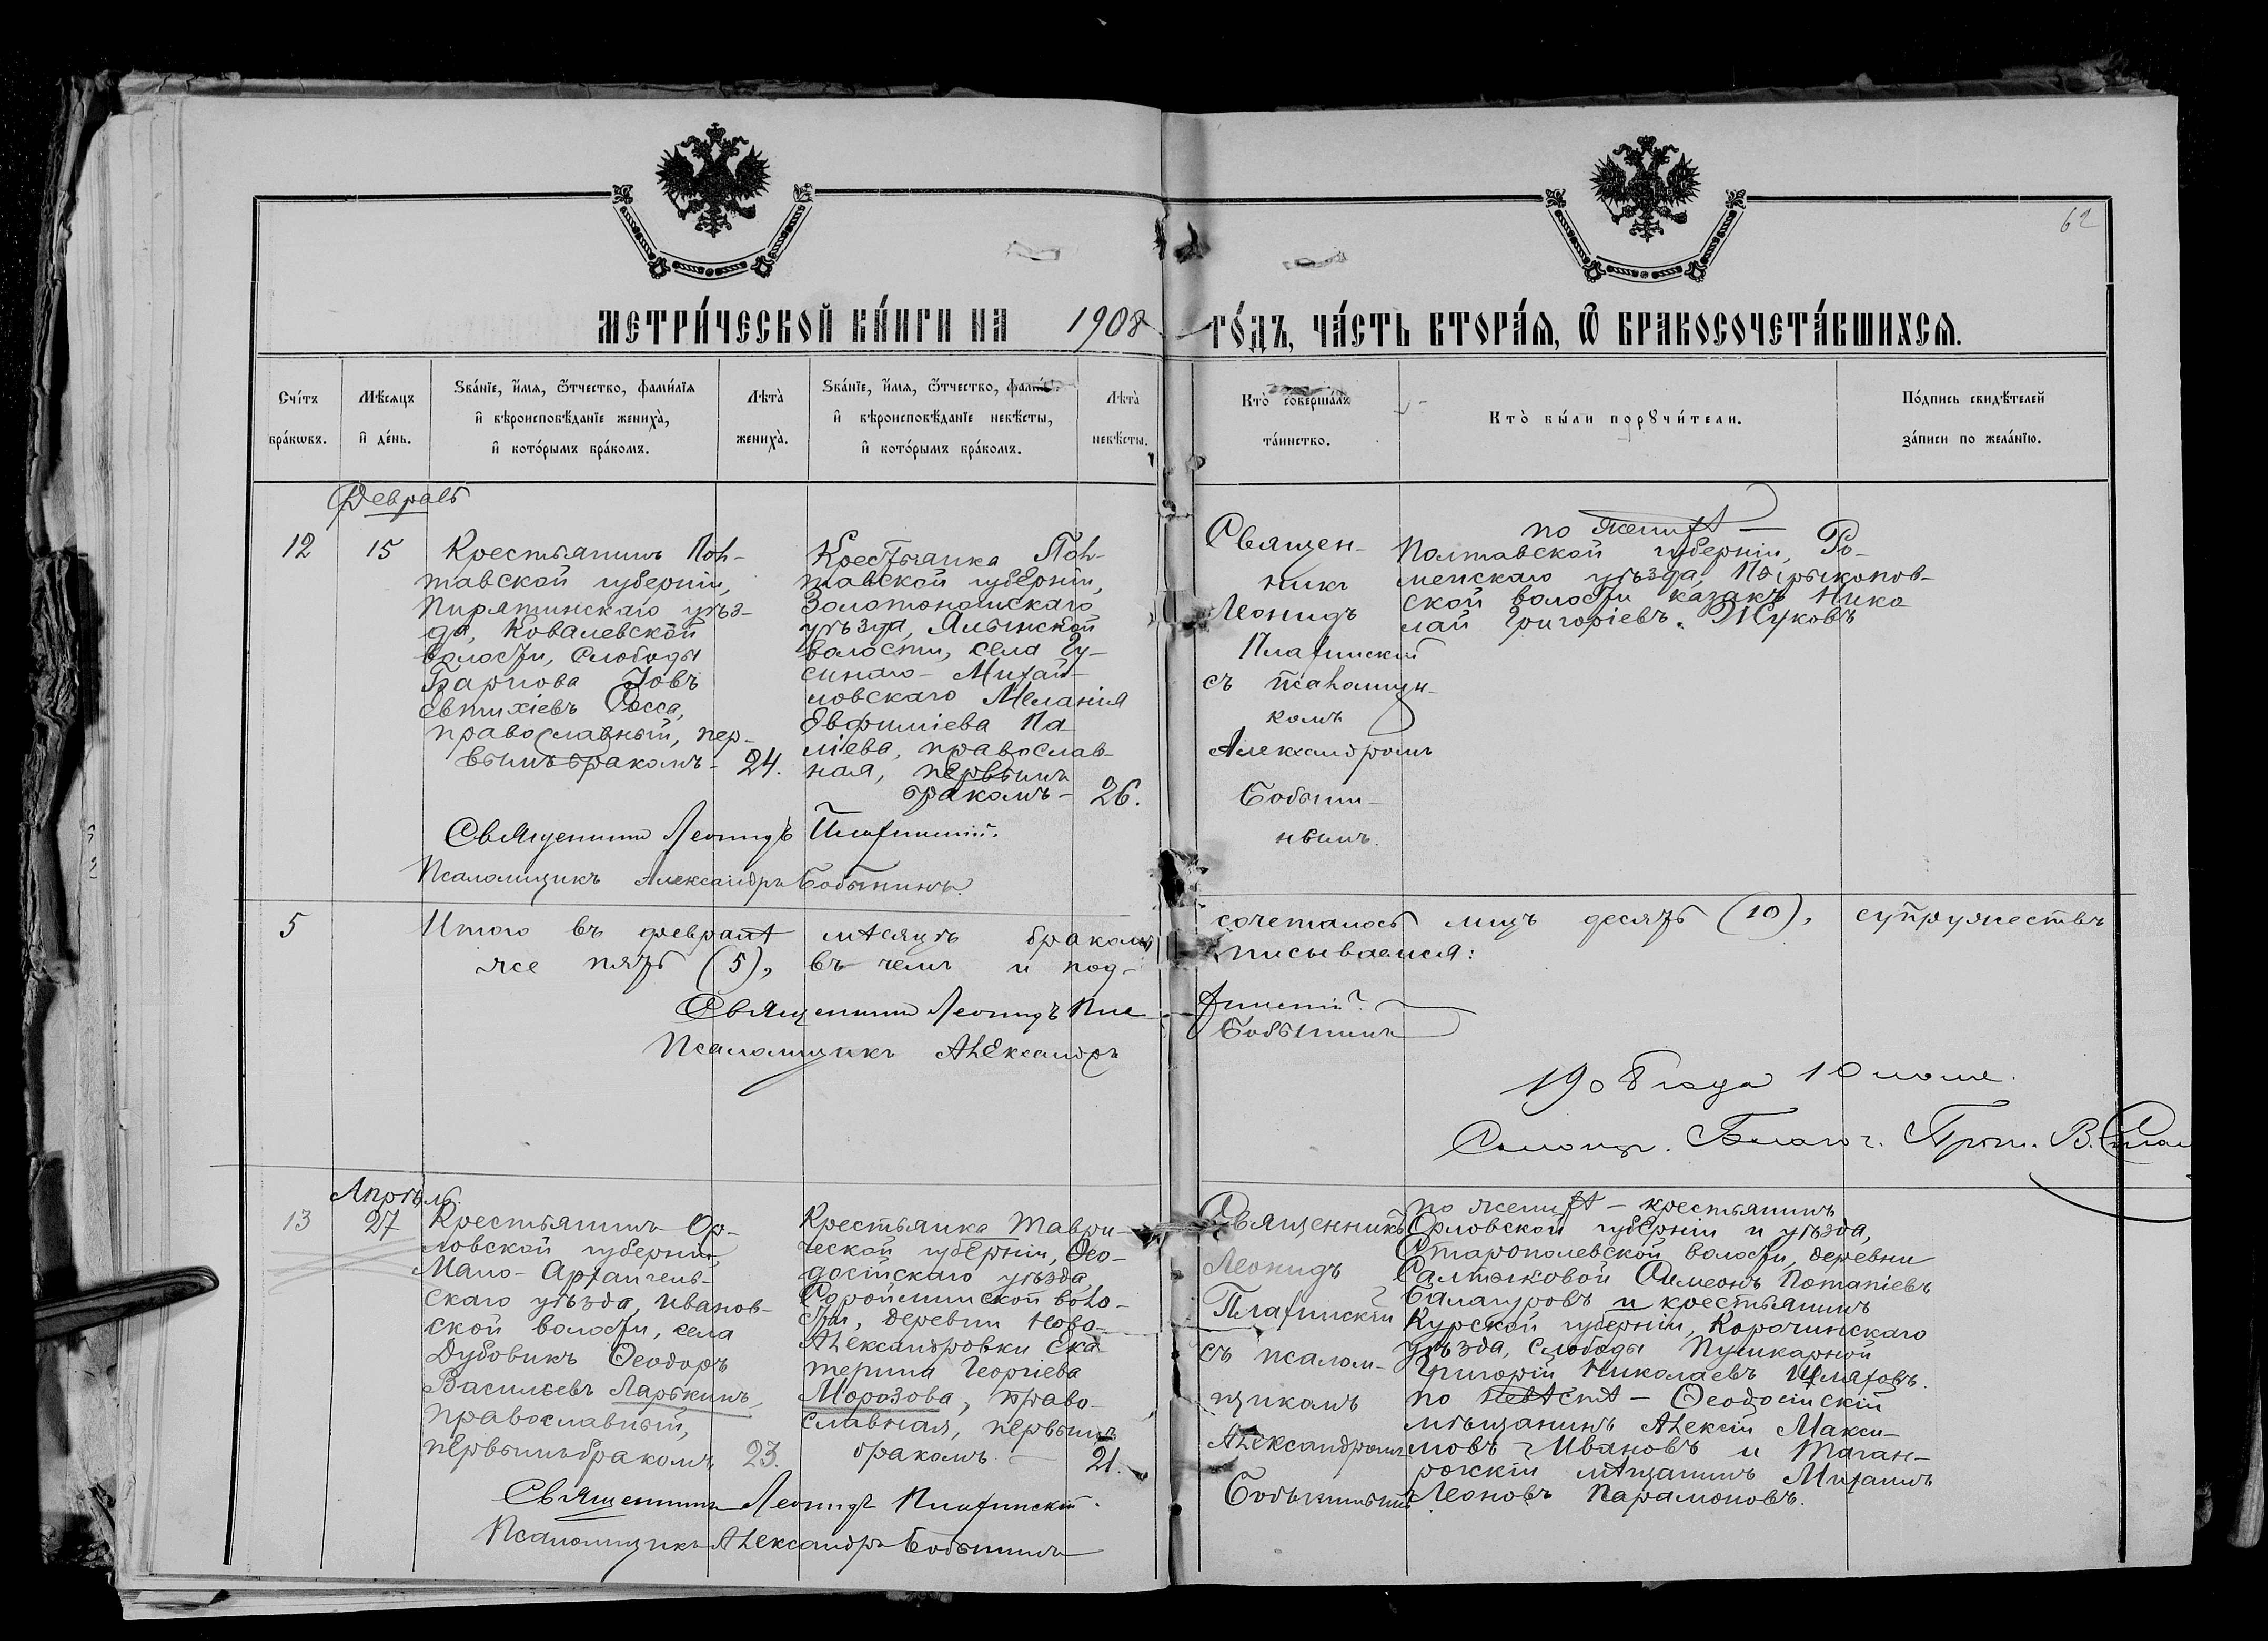 62
МЕТРИ́ЧЕСКОЙ КНИ́ГИ НА 1908 ГО́ДЪ, ЧА́СТЬ ВТОРА́Я, Ѿ БРАКОСОЧЕТА́ВШИХСЯ.
Сче́тъ
бра́кѡвъ.
Мѣ́сяцъ
и҆ де́нь.
Зва́нїе, и҆́мя, ѻ҆́тчество, фами́лїя
и҆ вѣроисповѣ́данїе жениха̀,
и҆ кото́рымъ бра́комъ.
Лѣта̀
жениха̀.
Зва́нїе, и҆́мя, ѻ҆́тчество, фами́лїя
и҆ вѣроисповѣ́данїе невѣ́сты,
и҆ кото́рымъ бра́комъ.
Лѣта̀
невѣ́сты.
Кто̀ соверша́лъ
та́инство.
Кто̀ бы́ли порꙋчи́тели.
По́дпись свидѣ́телей
за́писи по жела́нїю.
Февраль
12
15
Крестьянинъ Пол-
тавской губерніи,
Пирятинскаго уѣз-
да, Ковалевской
волости, слободы
Іовъ
Евтихіевъ
православный, пер-
вымъ бракомъ - 24.
Крестьянка Пол-
тавской губерніи,
Золотоношскаго
уѣзда,
волости, села Гу-
синаго - Михай-
ловскаго Меланія
Евфиміева Па-
ліева, православ-
ная, первымъ
бракомъ - 26.
Священ-
никъ
Леонидъ
Плахинскій
съ псаломщи-
комъ
Александромъ
Бобыни-
нымъ.
по женихѣ — Полтавской губерніи, Ро-
менскаго уѣзда,
ской волости казакъ Нико-
лай Григоріевъ Жуковъ
Священникъ Леонидъ Плахинскій.
Псаломщикъ Александръ Бобынинъ.
5
Итого въ февралѣ мѣсяцѣ бракомъ сочеталось лицъ десять (10), супружествъ
же пять (5), въ чемъ и под- писываемся:
Священникъ Леонидъ Плахинскій
Псаломщикъ Александръ Бобынинъ
1908 года 10 іюня.
Благоч. Прот. В.
Апрѣль.
13
27
Крестьянинъ Ор-
ловской губерніи,
Мало-Архангель-
скаго уѣзда, Иванов-
ской волости, села
Дубовикъ Ѳеодоръ
Васильевъ Ларькинъ,
православный,
первымъ бракомъ 23.
Крестьянка Таври-
ческой губерніи, Ѳео-
досійскаго уѣзда,
Сарайминской воло-
сти, деревни Ново-
Александровки Ека-
терина Георгіева
Морозова, право-
славная, первымъ
бракомъ — 21.
Священникъ
Леонидъ
Плахинскій
съ псалом-
щикомъ
Александромъ
Бобынинымъ
по женихѣ — крестьянинъ
Орловской губерніи и уѣзда,
Старополевской волости, деревни
Салтыковой Симеонъ Потапіевъ
Балагуровъ и крестьянинъ
Курской губерніи, Корочинскаго
уѣзда, слободы Пушкарной
Григорій Николаевъ Шляховъ.
по невѣстѣ — Ѳеодосійскій
мѣщанинъ Алексій Макси-
мовъ Ивановъ и Таган-
рогскій мѣщанинъ Михаилъ
Леоновъ Парамоновъ.
Священникъ Леонидъ Плахинскій.
Псаломщикъ Александръ Бобынинъ